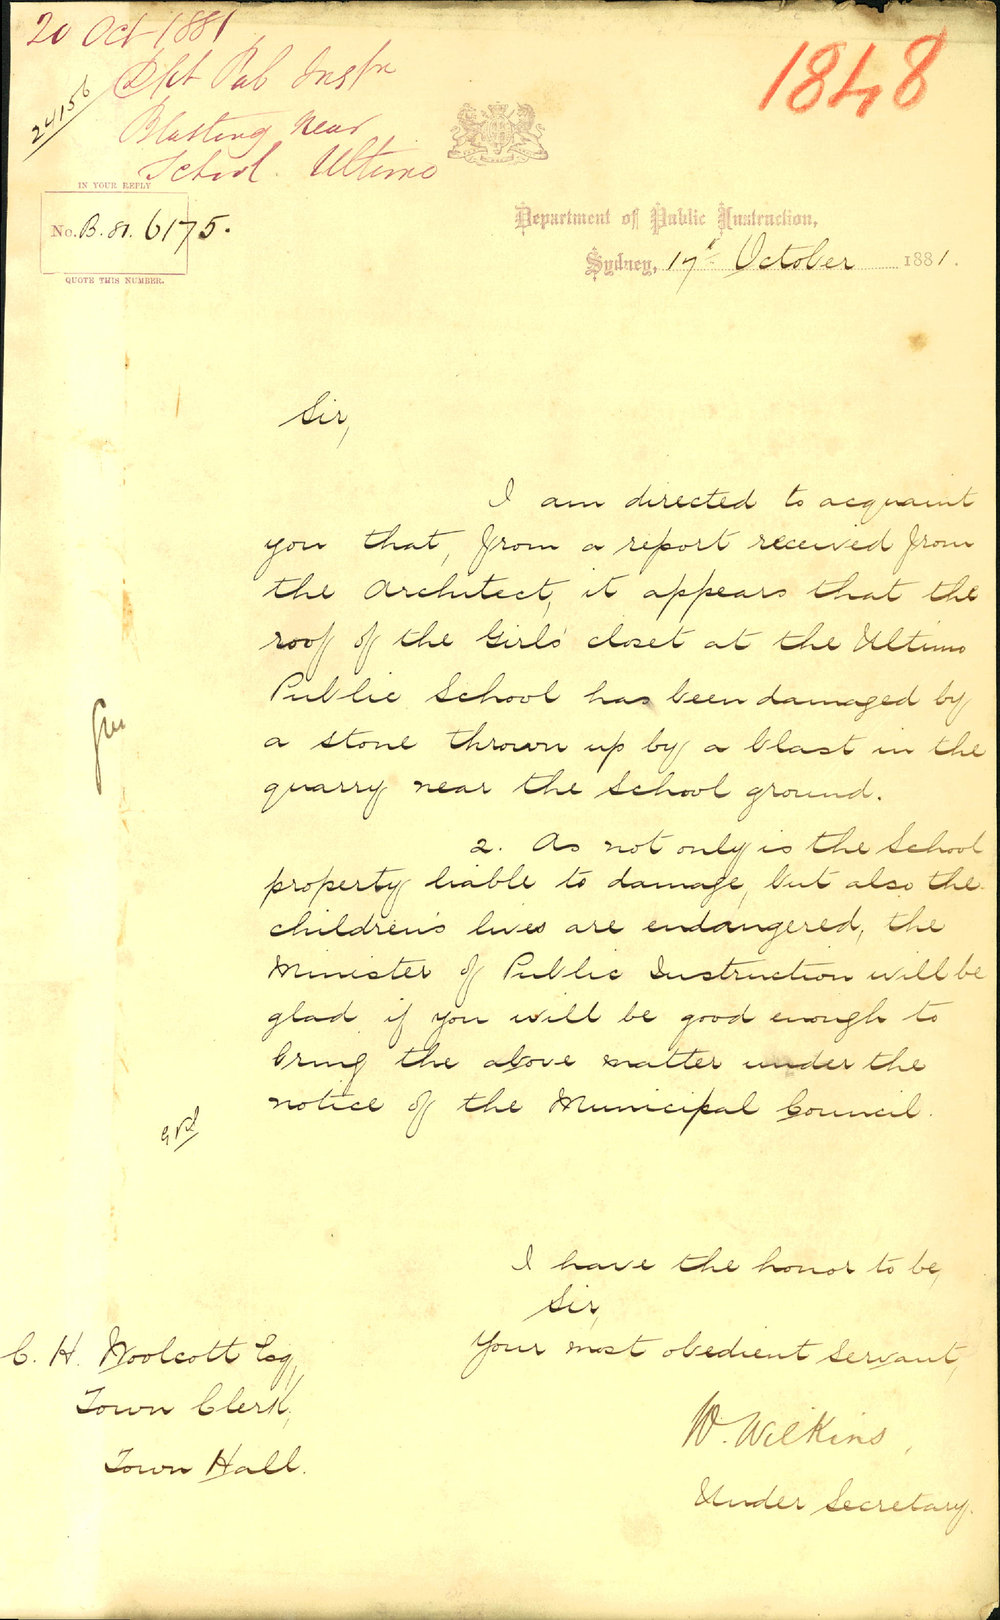 20 Oct 1881
Dpt Pub Instn
Blasting near
School. Ultimo
24156
1848
IN YOUR REPLY
No. B. 81. 6175.
QUOTE THIS NUMBER.
Department of Public Instruction,
Sydney, 17th October 1881.
Sir,
I am directed to acquaint
you that, from a report received from
the Architect, it appears that the
roof of the Girls' closet at the Ultimo
Public School has been damaged by
a stone thrown up by a blast in the
quarry near the School ground.
2. As not only is the School
property liable to damage, but also the
children's lives are endangered, the
Minister of Public Instruction will be
glad if you will be good enough to
bring the above matter under the
notice of the Municipal Council.
I have the honor to be,
Sir,
Your most obedient Servant,
W. Wilkins,
Under Secretary.
C. H. Woolcott Esq,
Town Clerk,
Town Hall.